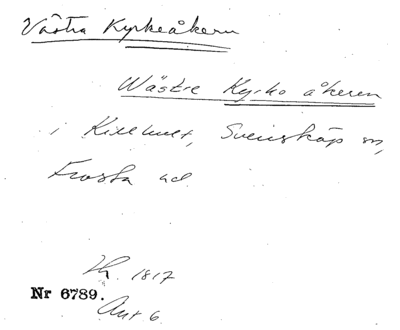 Västra Kyrkeåkern
Wästre Kyrko åkeren
i Killhult, Svensköp sn,
Frosta hd
Lh. 1817
Nr 6789.
Akt 6